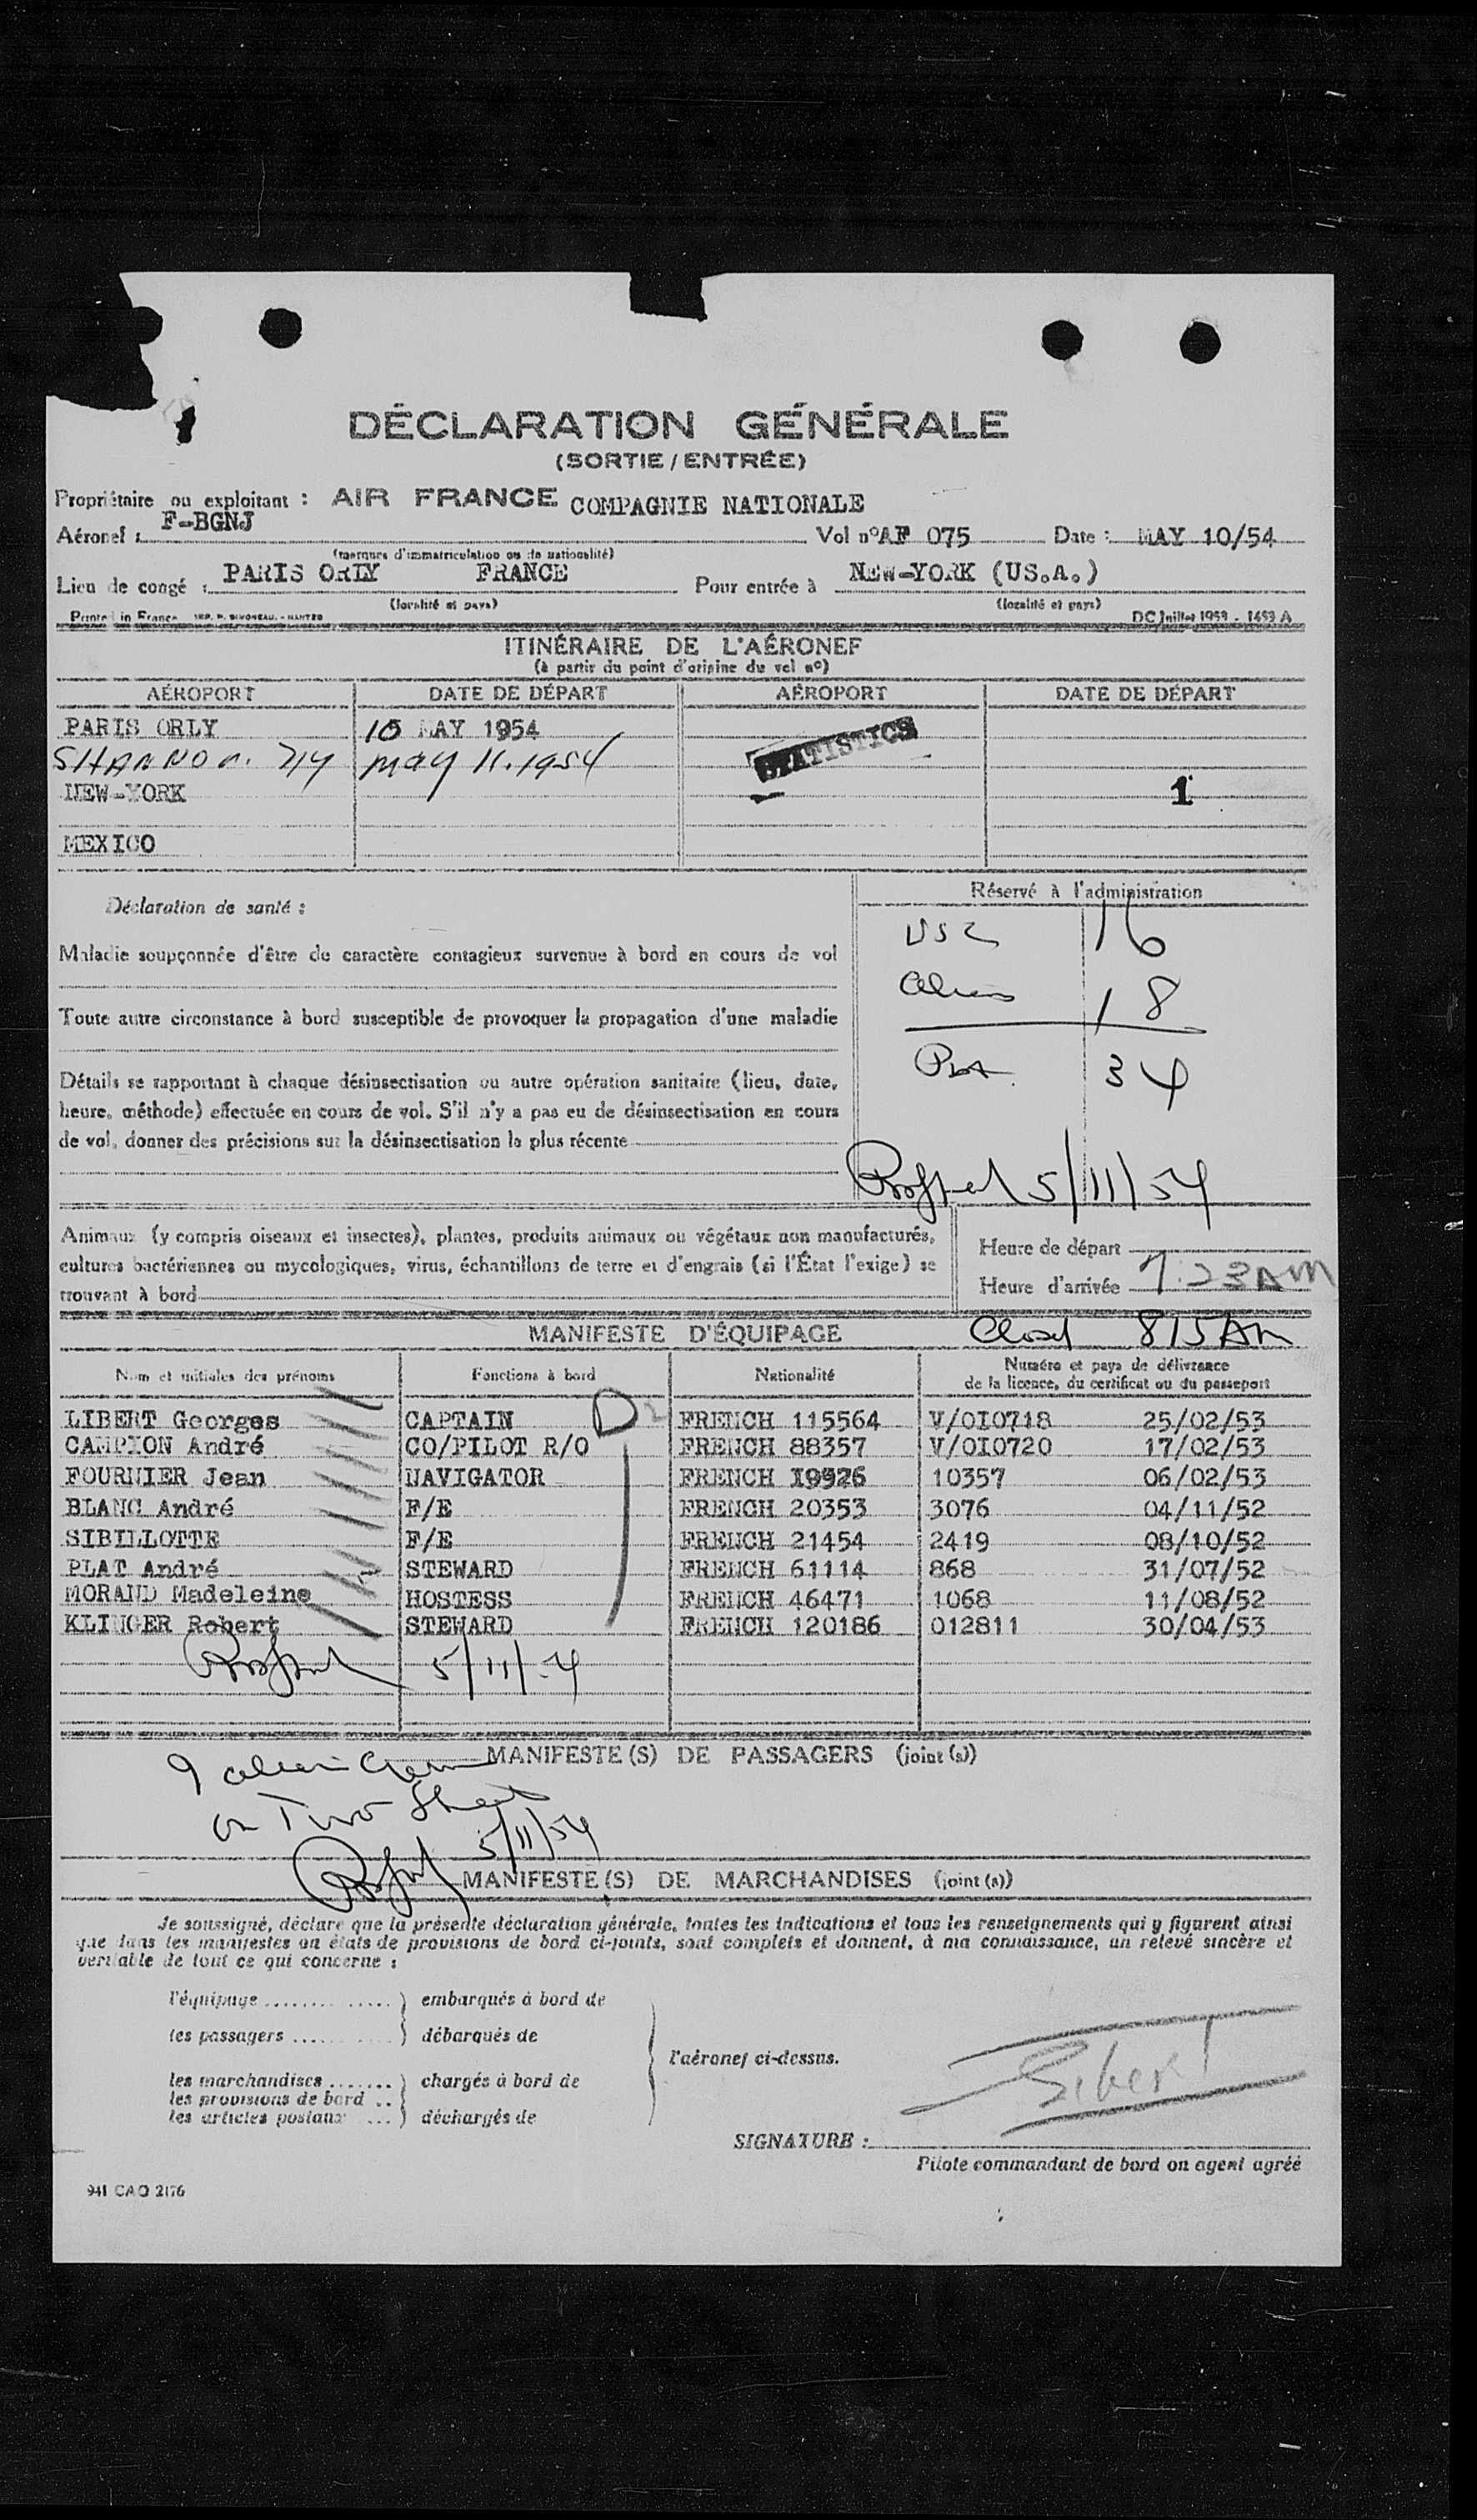 DÉCLARATION GÉNÉRALE
(SORTIE / ENTRÉE)
Propriétaire ou exploitant : AIR FRANCE COMPAGNIE NATIONALE
Aéronef : F-BGNJ Vol n° AF 075 Date : MAY 10/54
(marques d'immatriculation ou de nationalité)
Lieu de congé : PARIS ORLY FRANCE Pour entrée à NEW-YORK (US.A.)
(localité et pays) (localité et pays)
Printed in France IMP. P. SIMONEAU. - NANTES DC Juillet 1953 - 1453 A
ITINÉRAIRE DE L'AÉRONEF
(à partir du point d'origine du vol n°)
AÉROPORT DATE DE DÉPART AÉROPORT DATE DE DÉPART
PARIS ORLY 10 MAY 1954
STATISTICS
SHANNON may 11.1954
NEW-YORK 1
MEXICO
Déclaration de santé : Réservé à l'administration
USC 16
Maladie soupçonnée d'être de caractère contagieux survenue à bord en cours de vol
Aliens 18
Toute autre circonstance à bord susceptible de provoquer la propagation d'une maladie
34
Détails se rapportant à chaque désinsectisation ou autre opération sanitaire (lieu, date,
heure, méthode) effectuée en cours de vol. S'il n'y a pas eu de désinsectisation en cours
de vol, donner des précisions sur la désinsectisation la plus récente
5/11/54
Animaux (y compris oiseaux et insectes), plantes, produits animaux ou végétaux non manufacturés,
cultures bactériennes ou mycologiques, virus, échantillons de terre et d'engrais (si l'État l'exige) se
trouvant à bord
Heure de départ
Heure d'arrivée 7:23 AM
MANIFESTE D'ÉQUIPAGE Closed 815 Am
Nom et initiales des prénoms Fonctions à bord Nationalité Numéro et pays de délivrance
de la licence, du certificat ou du passeport
LIBERT Georges CAPTAIN D FRENCH 115564 V/0I0718 25/02/53
CAMPION André CO/PILOT R/O FRENCH 88357 V/0I0720 17/02/53
FOURNIER Jean NAVIGATOR FRENCH 19926 10357 06/02/53
BLANC André F/E FRENCH 20353 3076 04/11/52
SIBILLOTTE F/E FRENCH 21454 2419 08/10/52
PLAT André STEWARD FRENCH 61114 868 31/07/52
MORAND Madeleine HOSTESS FRENCH 46471 1068 11/08/52
KLINGER Robert STEWARD FRENCH 120186 012811 30/04/53
5/11/54
MANIFESTE(S) DE PASSAGERS (joint (s))
9 alien Crew
on Two Sheets
5/11/54
MANIFESTE(S) DE MARCHANDISES (joint (s))
Je soussigné, déclare que la présente déclaration générale, toutes les indications et tous les renseignements qui y figurent ainsi
que dans les manifestes ou états de provisions de bord ci-joints, sont complets et donnent, à ma connaissance, un relevé sincère et
véritable de tout ce qui concerne :
l'équipage .............. ) embarqués à bord de
les passagers ........... ) débarqués de
l'aéronef ci-dessus.
les marchandises ....... ) chargés à bord de
les provisions de bord ..
les articles postaux ... ) déchargés de
Libert
SIGNATURE :
Pilote commandant de bord ou agent agréé
941 CAO 2176